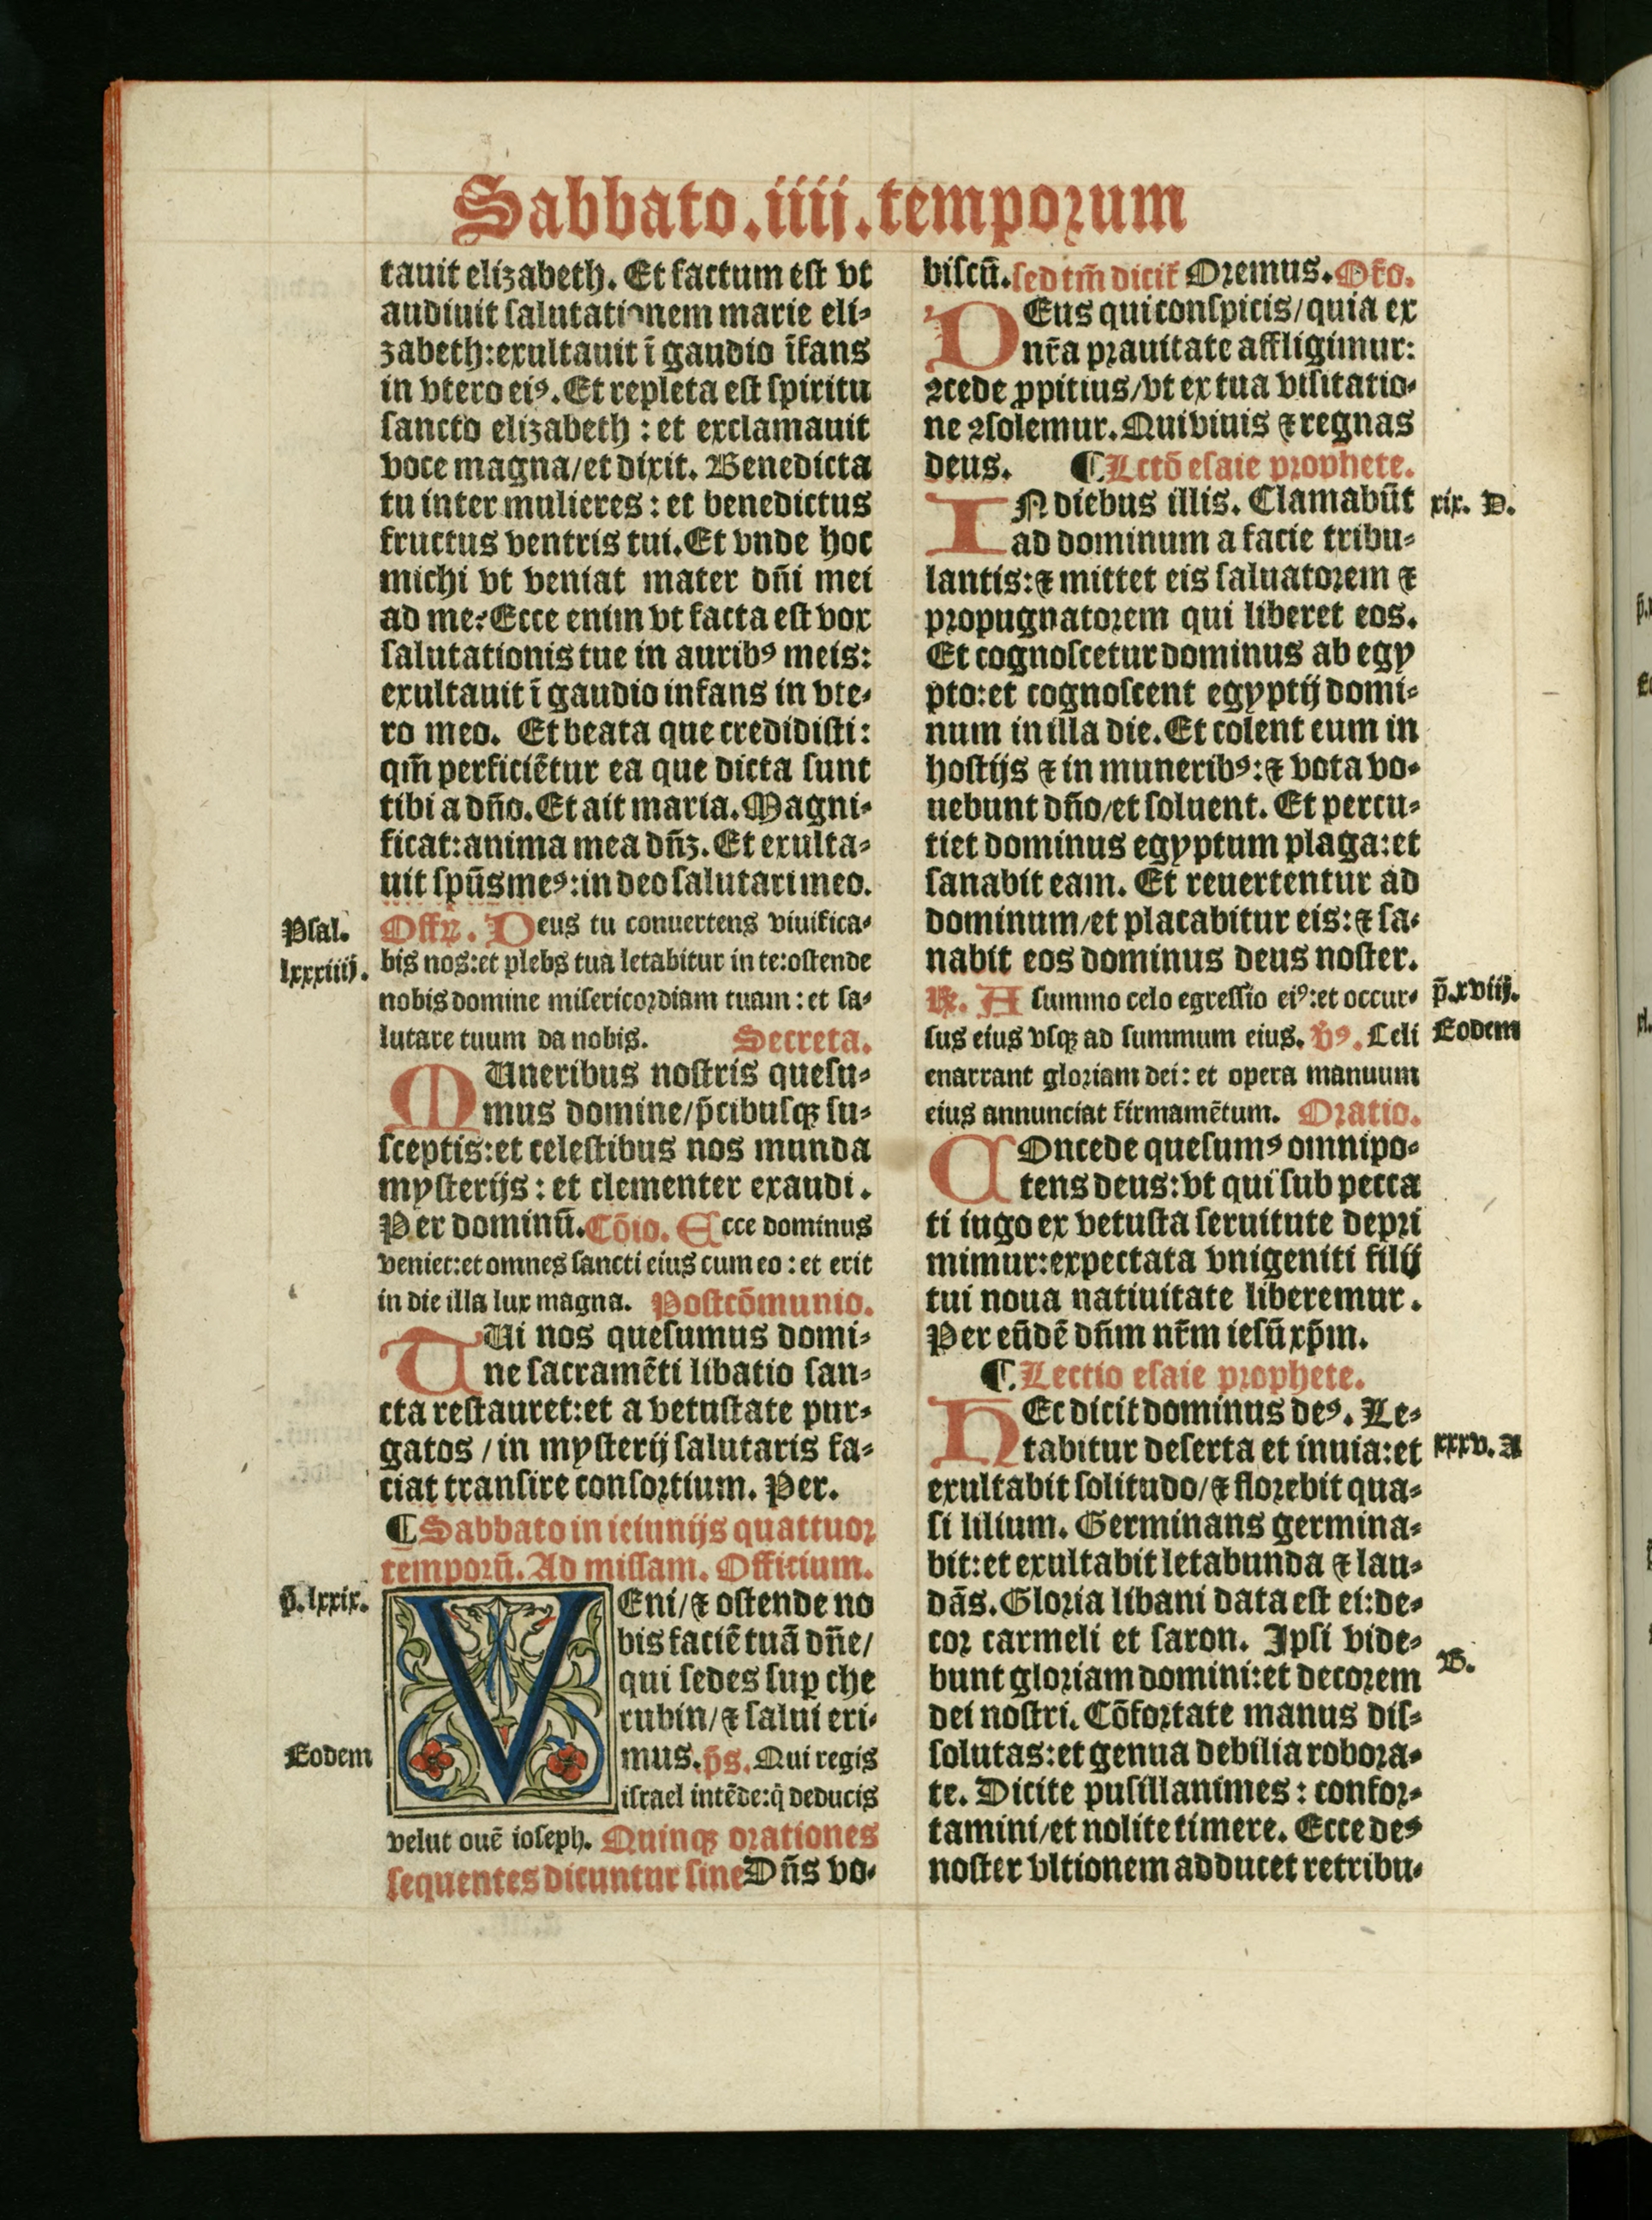 Sabbato.iiij.temporum
tauit elizabeth. Et factum est vt
audiuit salutationem marie eli⸗
zabeth:exultauit ī gaudio īfans
in vtero eiꝰ. Et repleta est spiritu
sancto elizabeth : et exclamauit
voce magna/et dixit. Benedicta
tu inter mulieres : et benedictus
fructus ventris tui. Et vnde hoc
michi vt veniat mater dñi mei
ad me? Ecce enim vt facta est vox
salutationis tue in auribꝰ meis:
exultauit ī gaudio infans in vte⸗
ro meo. Et beata que credidisti:
qm̄ perficiētur ea que dicta sunt
tibi a dño. Et ait maria. Magni⸗
ficat:anima mea dñꝫ. Et exulta⸗
uit spūs meꝰ:in deo salutari meo.
Psal.
lxxxiiij.
Offꝝ. Deus tu conuertens viuifica⸗
bis nos:et plebs tua letabitur in te:ostende
nobis domine misericordiam tuam : et sa⸗
lutare tuum da nobis. Secreta.
MUneribus nostris quesu⸗
mus domine/p̄cibusqꝫ su⸗
sceptis:et celestibus nos munda
mysterijs : et clementer exaudi.
Per dominū. Cōio. Ecce dominus
veniet:et omnes sancti eius cum eo : et erit
in die illa lux magna. Postcōmunio.
TUi nos quesumus domi⸗
ne sacramēti libatio san⸗
cta restauret:et a vetustate pur⸗
gatos / in mysterij salutaris fa⸗
ciat transire consortium. Per.
¶ Sabbato in ieiunijs quattuor
temporū. Ad missam. Officium.
p̄. lxxix.
VEni/⁊ ostende no
bis faciē tuā dñe/
qui sedes suꝑ che
rubin/⁊ salui eri⸗
Eodem
mus. p̄s. Qui regis
israel intēde:q̇ deducis
velut ouē ioseph. Quinqꝫ orationes
sequentes dicuntur sine Dñs vo⸗
biscū. sed tm̄ dicit̄ Oremus. Or̄o.
DEus qui conspicis/quia ex
nr̄a prauitate affligimur:
ꝯcede ꝓpitius/vt ex tua visitatio⸗
ne ꝯsolemur. Qui viuis ⁊ regnas
deus. ¶ Lctō esaie prophete.
IN diebus illis. Clamabūt
xix. D.
ad dominum a facie tribu⸗
lantis:⁊ mittet eis saluatorem ⁊
propugnatorem qui liberet eos.
Et cognoscetur dominus ab egy
pto:et cognoscent egyptij domi⸗
num in illa die. Et colent eum in
hostijs ⁊ in muneribꝰ:⁊ vota vo⸗
uebunt dño/et soluent. Et percu⸗
tiet dominus egyptum plaga:et
sanabit eam. Et reuertentur ad
dominum/et placabitur eis:⁊ sa⸗
nabit eos dominus deus noster.
p̄.xviij.
Eodem
℞. A summo celo egressio eiꝰ:et occur⸗
sus eius vsqꝫ ad summum eius. v̄ꝰ. Celi
enarrant gloriam dei : et opera manuum
eius annunciat firmamētum. Oratio.
COncede quesumꝰ omnipo⸗
tens deus:vt qui sub pecca
ti iugo ex vetusta seruitute depri
mimur:expectata vnigeniti filij
tui noua natiuitate liberemur.
Per eūdē dñm nr̄m iesū xp̄m.
¶ Lectio esaie prophete.
HEc dicit dominus deꝰ. Le⸗
tabitur deserta et inuia:et
xxxv. A
exultabit solitudo/⁊ florebit qua⸗
si lilium. Germinans germina⸗
bit:et exultabit letabunda ⁊ lau⸗
dās. Gloria libani data est ei:de⸗
cor carmeli et saron. Ipsi vide⸗
B.
bunt gloriam domini:et decorem
dei nostri. Cōfortate manus dis⸗
solutas:et genua debilia robora⸗
te. Dicite pusillanimes : confor⸗
tamini/et nolite timere. Ecce deꝰ
noster vltionem adducet retribu⸗